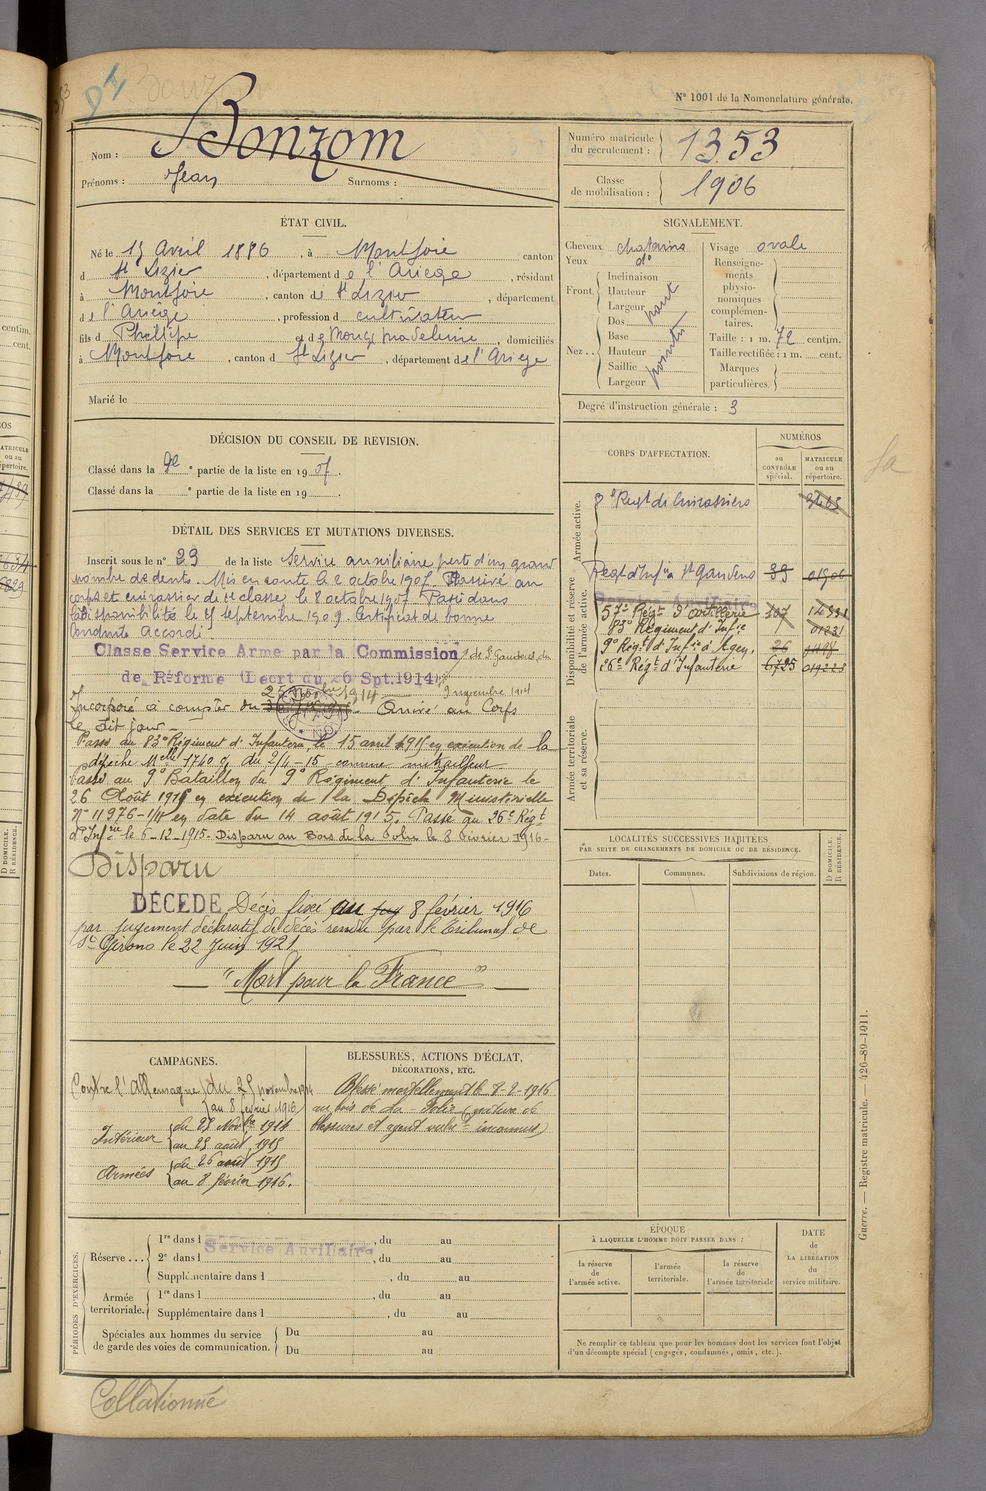 DI
Bonzom
N° 1001 de la Nomenclature générale.
Nom : Bonzom
Prénoms : Jean Surnoms :
Numéro matricule du recrutement : 1353
Classe de mobilisation : 1906
ÉTAT CIVIL.
Né le 15 Avril 1886, à Montjoie, canton
d St Lizier, département de l'Ariège, résidant
à Montjoie, canton de St Lizier, département
de l'Ariège, profession d cultivateur
fils d Philippe et de Monge Madeleine, domiciliés
à Montjoie, canton d St Lizier, département de l'Ariège
Marié le
SIGNALEMENT.
Cheveux chatains
Yeux do
Front Inclinaison
Hauteur
Largeur haut
Nez Dos
Base
Hauteur
Saillie
Largeur pointu
Visage ovale
Renseignements physionomiques complémentaires.
Taille : 1 m. 72 centim.
Taille rectifiée : 1 m. cent.
Marques particulières.
Degré d'instruction générale : 3
DÉCISION DU CONSEIL DE REVISION.
Classé dans la 2e partie de la liste en 1907.
Classé dans la e partie de la liste en 19
DÉTAIL DES SERVICES ET MUTATIONS DIVERSES.
Inscrit sous le n° 23 de la liste Service auxiliaire perte d'un grand
nombre de dents. Mis en route le 2 octobre 1907. Arrivé au
corps et cuirassier de 2e classe le 8 octobre 1907. Passé dans
la disponibilité le 25 septembre 1909. Certificat de bonne
Conduite Accordé.
Classe Service Armé par la Commission de St Gaudens du
de Réforme (Décrt du 26 Spt. 1914) 9 novembre 1914
Incorporé à compter du 25 Novbre 1914 Arrivé au Corps
le dit jour
Passé au 83e Régiment d'Infanterie le 15 avril 1915 en exécution de la
dépêche Melle 1740 du 2/4-15 comme mitrailleur
Passé au 9e Bataillon du 9e Régiment d'Infanterie le
26 Août 1915 en exécution de la Dépêche Ministérielle
N° 11976-1/11 en date du 14 août 1915. Passé au 26e Régt
d'Infrie le 6-12-1915. Disparu au Bois de la Folie le 8 Février 1916.
Disparu
DÉCÉDÉ Décès fixé au 8 février 1916
par jugement déclaratif de décès rendu par le Tribunal de
St Girons le 22 Juin 1921
"Mort pour la France"
CORPS D'AFFECTATION.
NUMÉROS
au CONTRÔLE spécial.
MATRICULE ou au répertoire.
Armée active.
8e Regt de Cuirassiers
Disponibilité et réserve de l'armée active.
Regt d'Infie à St Gaudens 01906
Service Auxiliaire
57e Régt d'artillerie 107
83e Régiment d'Infie
9e Régt d'Infie à Agen 26
26e Régt d'Infanterie 6725
Armée territoriale et sa réserve.
LOCALITÉS SUCCESSIVES HABITÉES
PAR SUITE DE CHANGEMENTS DE DOMICILE OU DE RÉSIDENCE.
Dates. Communes. Subdivisions de région.
D DOMICILE. R RÉSIDENCE.
CAMPAGNES.
Contre l'Allemagne du 25 novembre 1914
au 8 février 1916
Intérieur du 25 Novbre 1914
au 25 août 1915
Armées du 26 août 1915
au 8 février 1916.
BLESSURES, ACTIONS D'ÉCLAT,
DÉCORATIONS, ETC.
Blessé mortellement le 8-2-1916
au bois de la Folie (nature de
blessures et agent inconnus)
PÉRIODES D'EXERCICES.
Réserve... 1re dans l , du au
Service Auxiliaire
2e dans l , du au
Supplémentaire dans l , du au
Armée territoriale. 1re dans l , du au
Supplémentaire dans l , du au
Spéciales aux hommes du service de garde des voies de communication. Du au
Du au
ÉPOQUE
À LAQUELLE L'HOMME DOIT PASSER DANS :
la réserve de l'armée active.
l'armée territoriale.
la réserve de l'armée territoriale
DATE de LA LIBÉRATION du service militaire.
Ne remplir ce tableau que pour les hommes dont les services font l'objet
d'un décompte spécial (engagés, condamnés, omis, etc.).
Guerre. — Registre matricule. — 426-89-1911.
Collationné